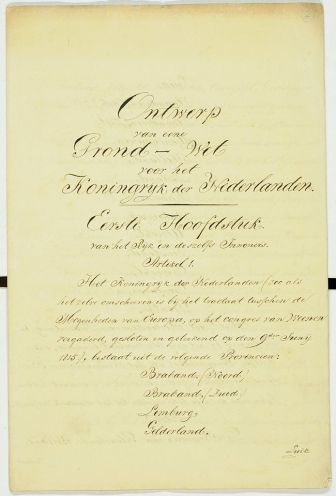 Ontwerp
van eene
Grond - Wet
voor het
Koningryk der Nederlanden.
Eerste Hoofdstuk.
van het Ryk en deszelfs Inwoners.
Artikel 1.
Het Koningryk der Nederlanden (zoo als
het zelve omschreven is by het tractaat tusschen de
Mogenheden van Europa, op het congres van Weenen
vergaderd, gesloten en geteekend op den 9den Juny
1815), bestaat uit de volgende Provincien:
Braband, (Noord)
Braband, (Zuid)
Limburg,
Gelderland,
Luik